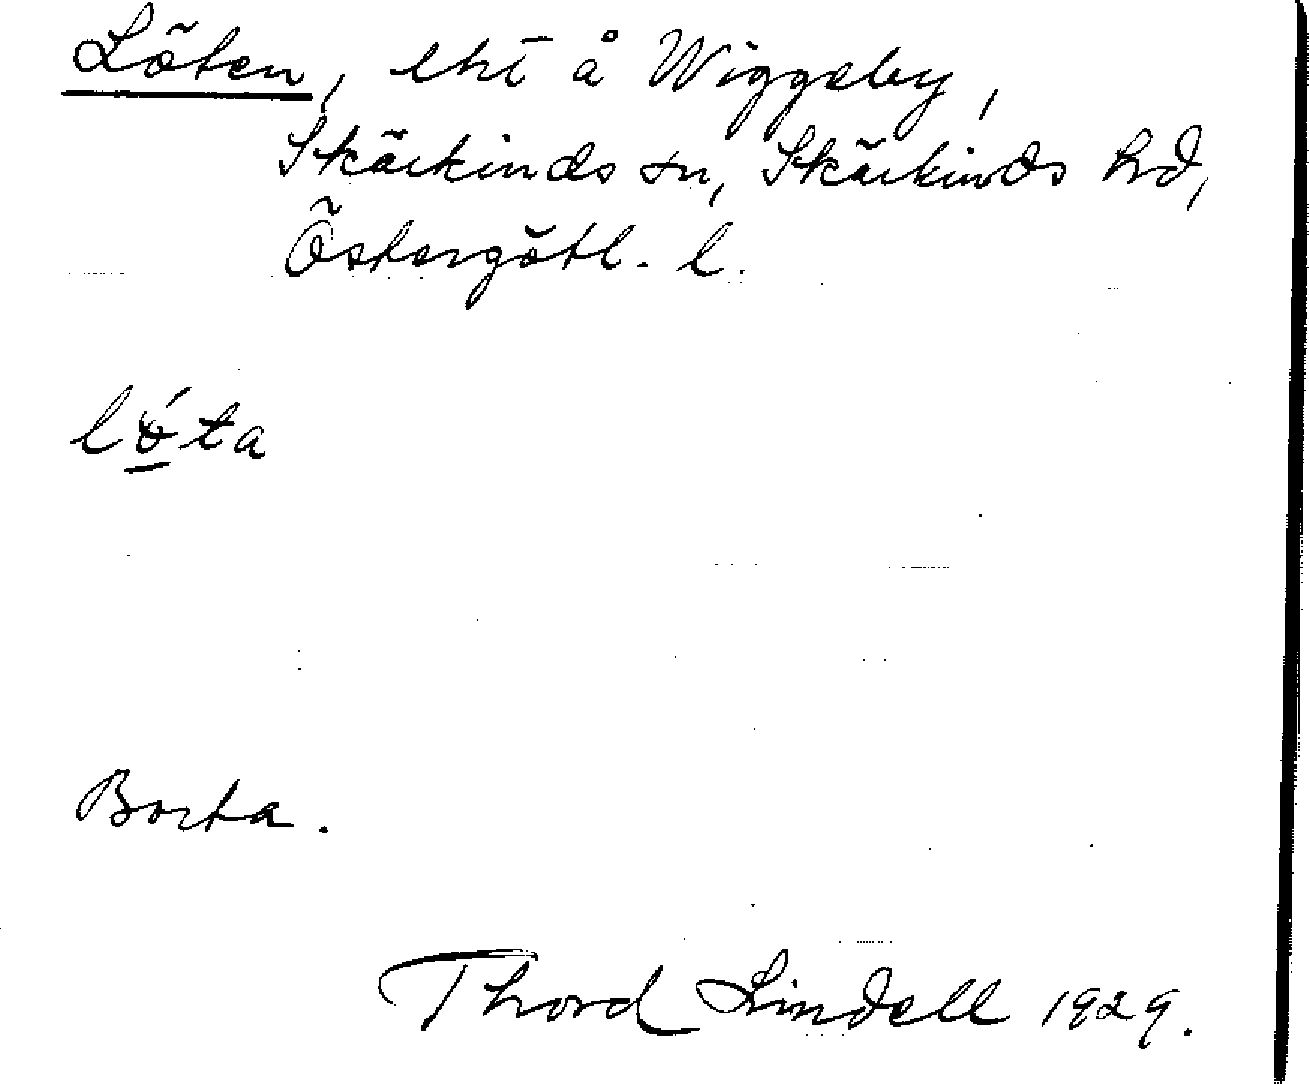 Löten, lht å Wiggeby,
Skärkinds sn, Skärkinds hd,
Östergötl. l.
lǿta
Borta.
Thord Lindell 1929.